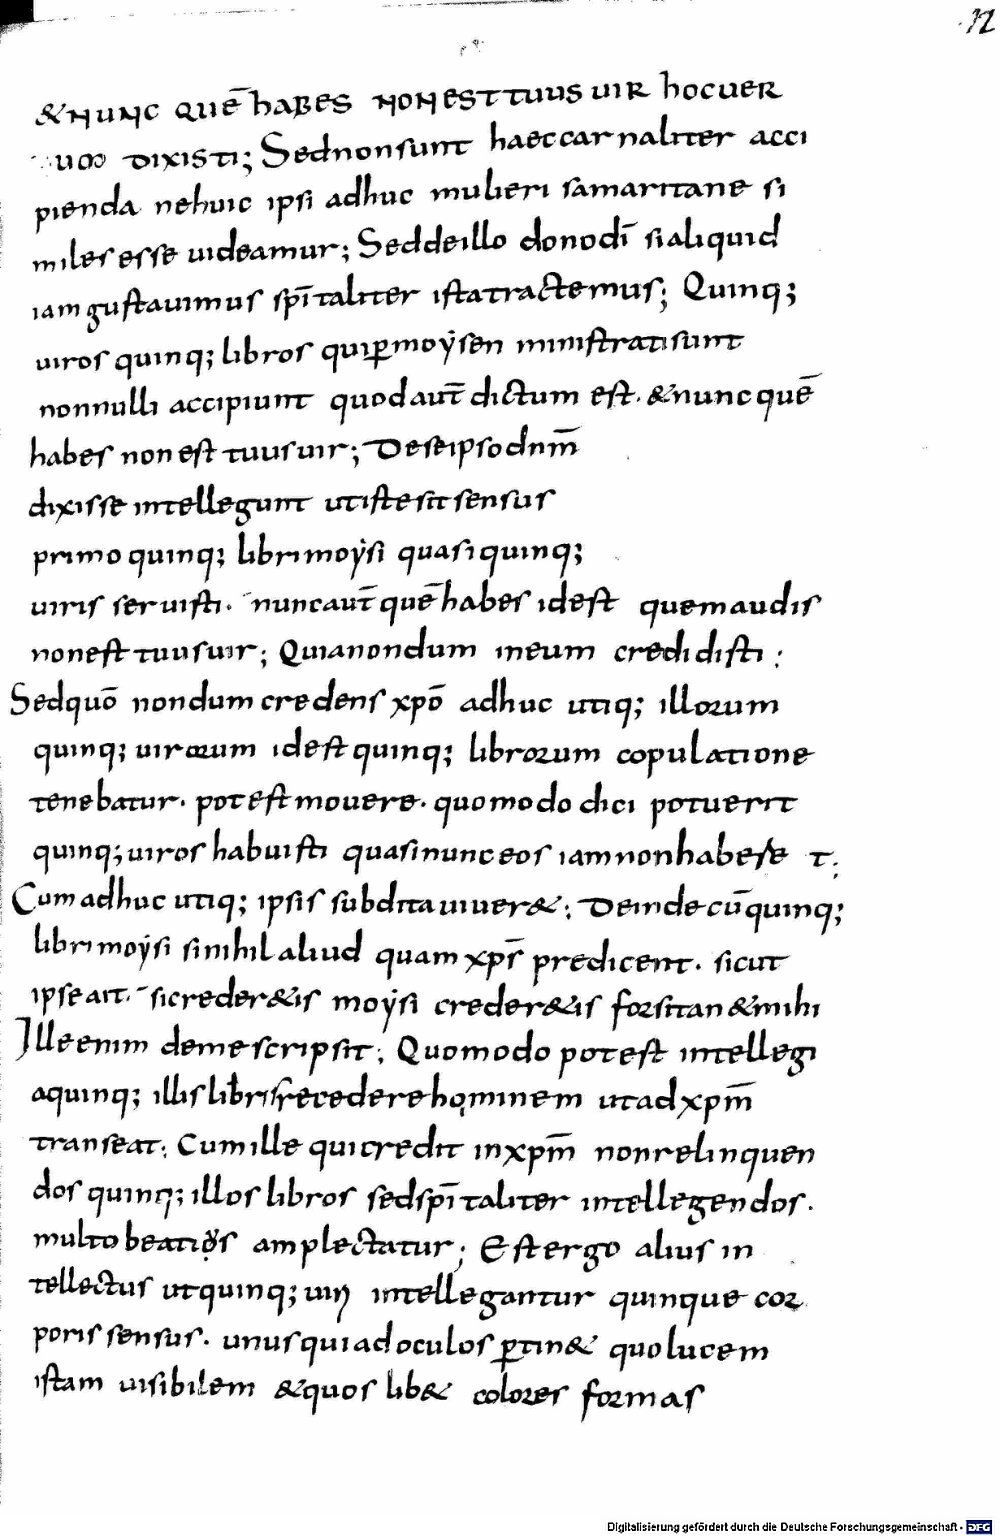 12
& nunc quē habes non est tuus uir hoc uer
um dixisti; Sed non sunt haec carnaliter acci
pienda ne huic ipsi adhuc mulieri samaritane si
miles esse uideamur; Sed de illo dono dī si aliquid
iam gustauimus spītaliter ista tractemus; Quinq;
uiros quinq; libros qui ꝑ moẏsen ministrati sunt
nonnulli accipiunt quod aut̄ dictum est. & nunc quē
habes non est tuus uir; De se ipso dnm̄
dixisse intellegunt ut iste sit sensus
primo quinq; libri moẏsi quasi quinq;
uiris seruisti. nunc aut̄ quē habes id est quem audis
non est tuus uir; Quia nondum in eum credidisti;
Sed quō nondum credens xpō adhuc utiq; illorum
quinq; uirorum id est quinq; librorum copulatione
tenebatur. potest mouere. quomodo dici potuerit
quinq; uiros habuisti quasi nunc eos iam non haberet;
Cum adhuc utiq; ipsis subdita uiuer&; Deinde cū quinq;
libri moẏsi si nihil aliud quam xps̄ predicent. sicut
ipse ait. si creder&is moẏsi creder&is forsitan & mihi
Ille enim de me scripsit; Quomodo potest intellegi
a quinq; illis libris recedere hominem ut ad xpm̄
transeat; Cum ille qui credit in xpm̄ non relinquen
dos quinq; illos libros sed spītaliter intellegendos.
multo beatius amplectatur; Est ergo alius in
tellectus ut quinq; uiri intellegantur quinque cor
poris sensus. unus qui ad oculos ꝑtin& quo lucem
istam uisibilem & quos lib& colores formas
Digitalisierung gefördert durch die Deutsche Forschungsgemeinschaft - DFG